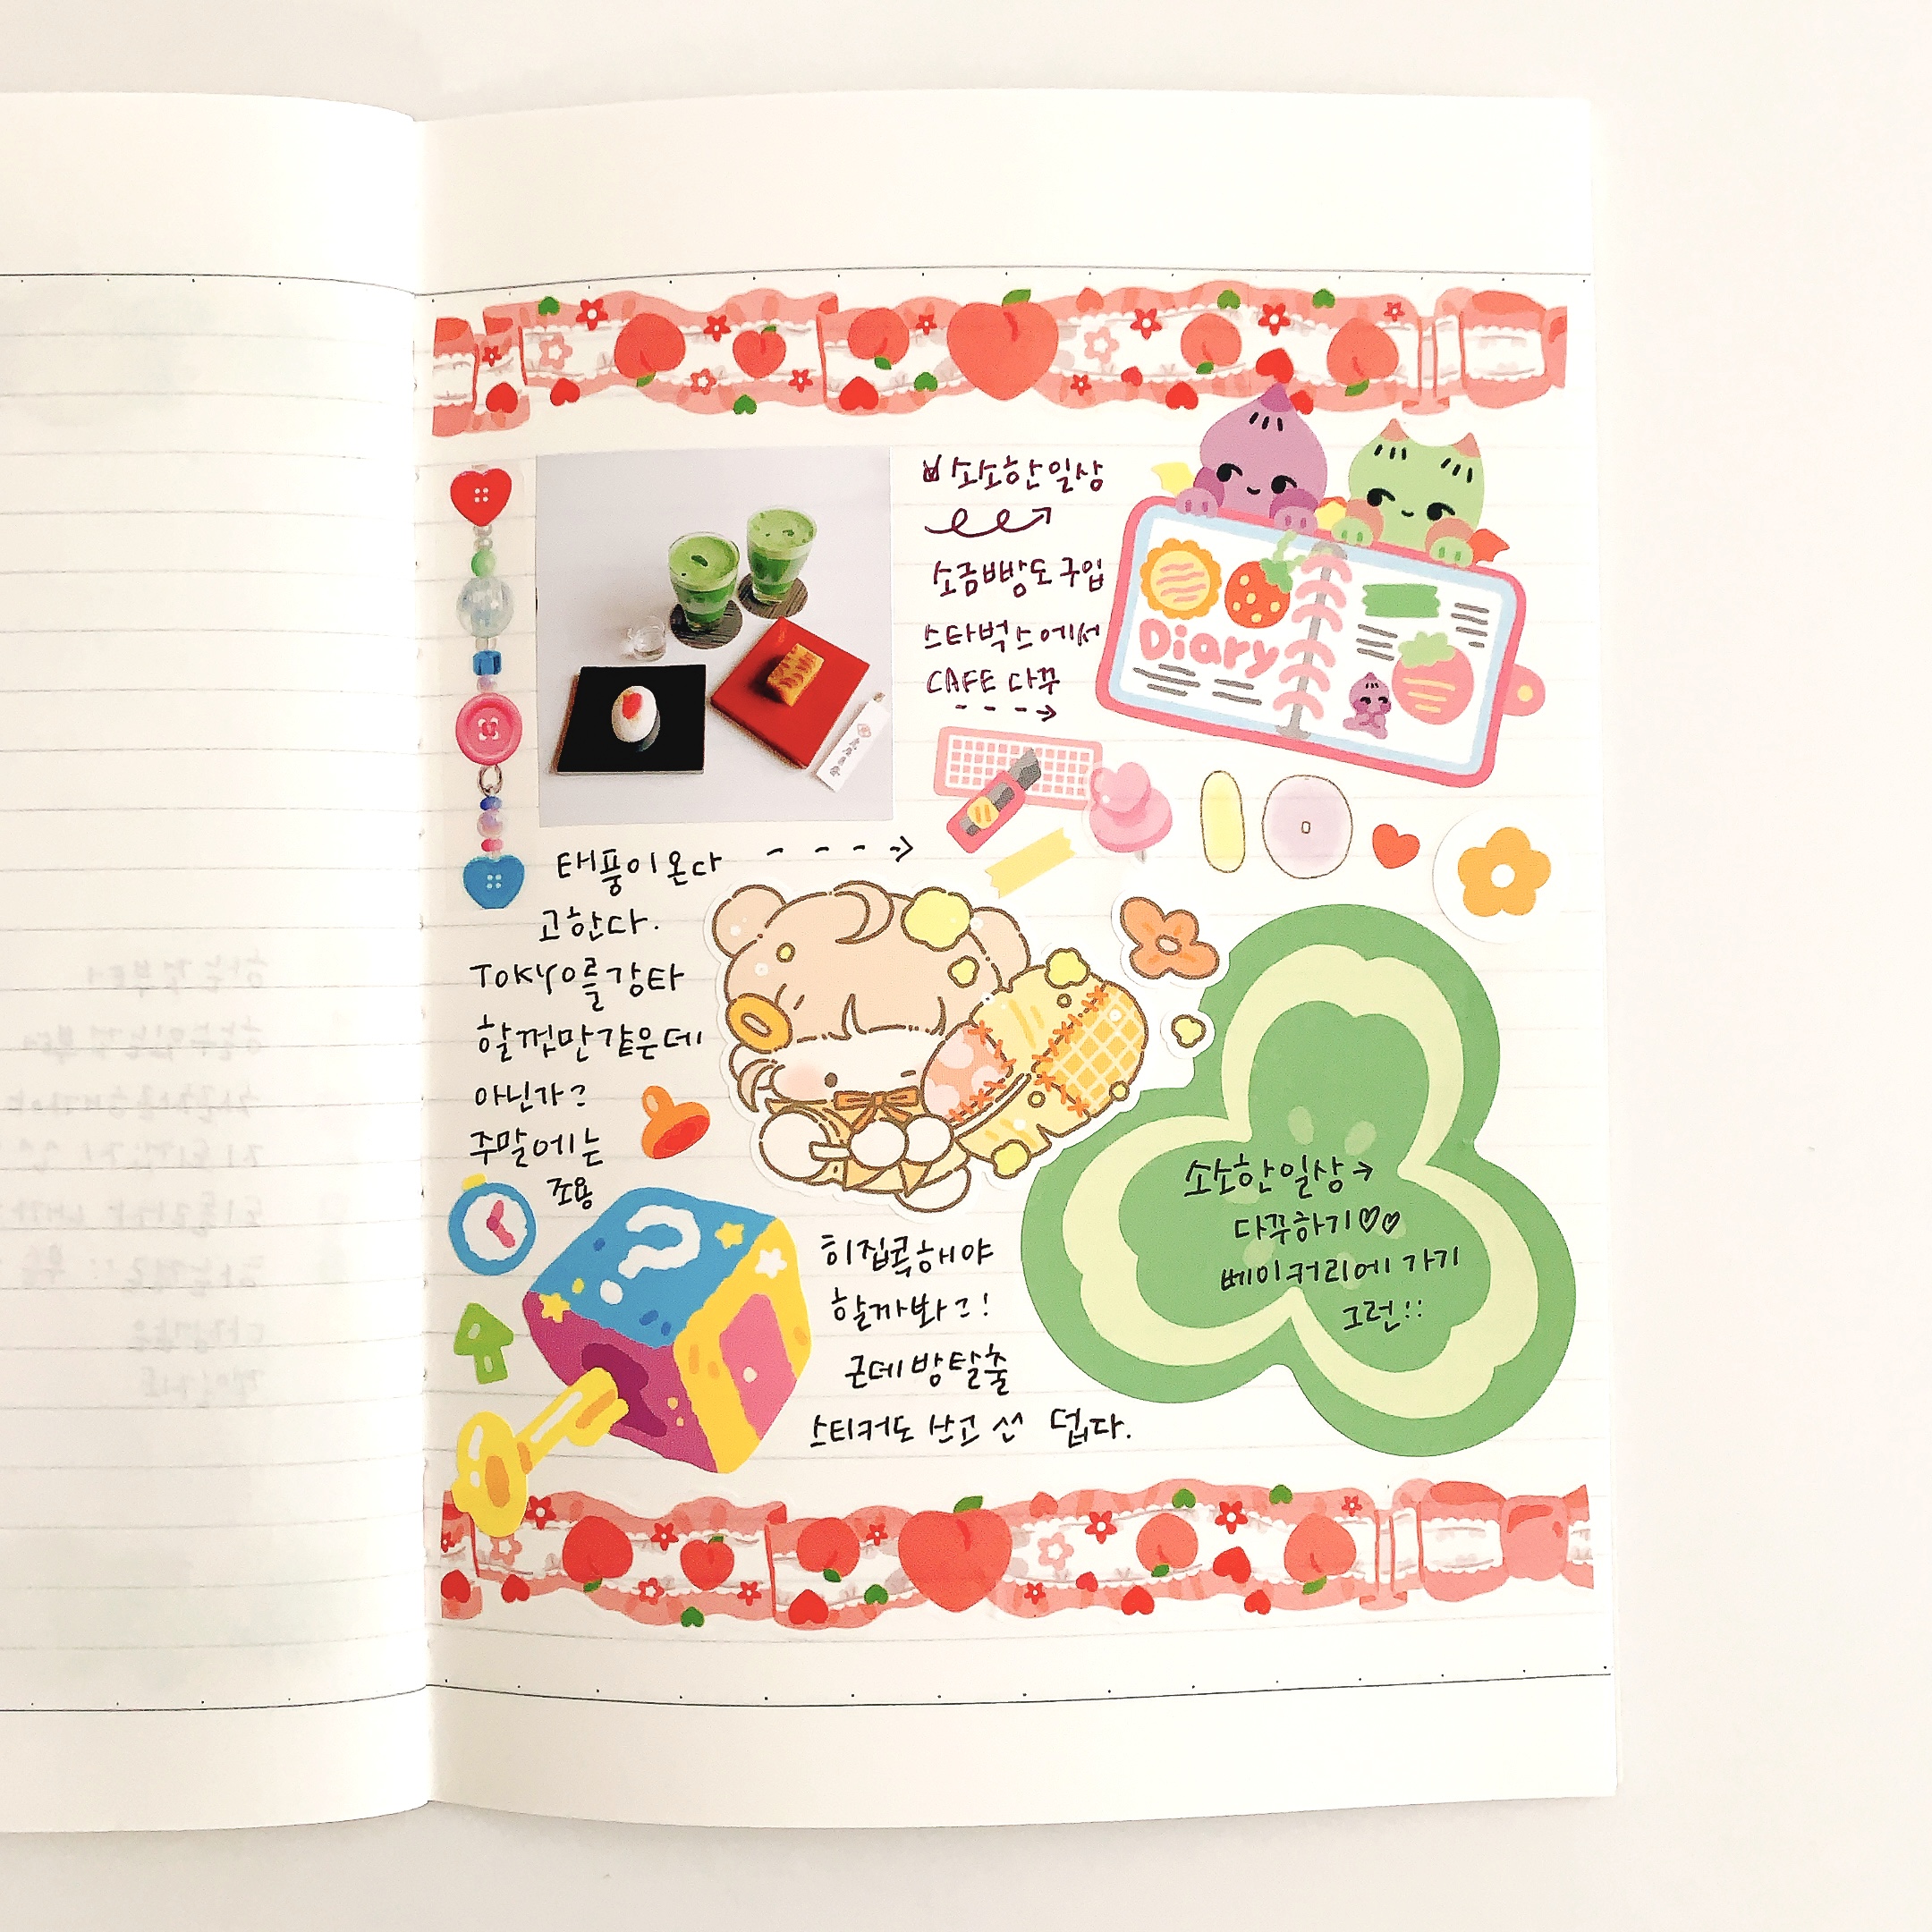 소소한일상
소금빵도 구입
스타벅스에서
CAFE 다꾸
Diary
태풍이 온다
고한다.
TOKYO를 강타
할껀만 같은데
아닌가ㄱ
주말에는
조용
히집콕해야
할까봐ㄱ!
근데 방탈출
스티커도 난고 덥다.
소소한일상→
다꾸하기♡♡
베이커리에 가기
그런!!
?